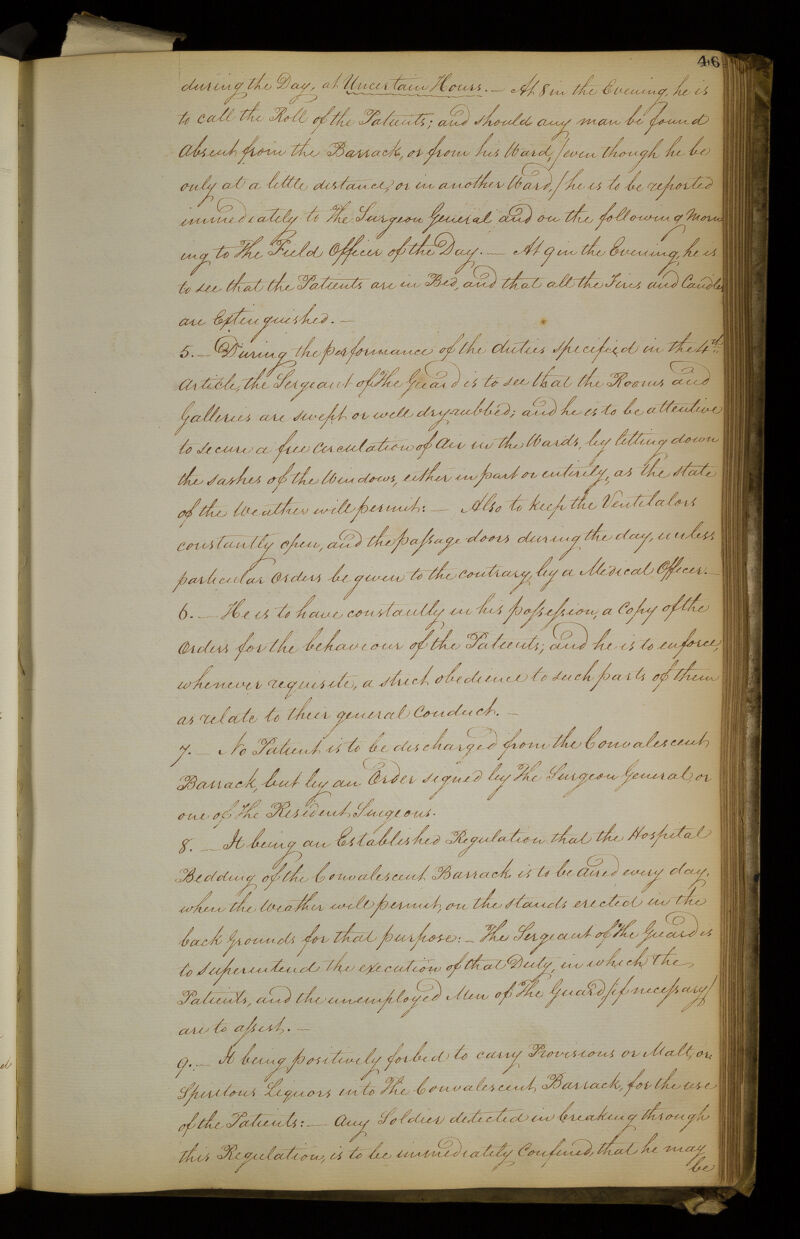 46
during the Day, at Uncertain Hours. — At 8 in the Evening, he is
to call the Roll of the Patients; and should any man be found
Absent from the Barrack, or from his Ward, /even though he be
only at a little distance, or in another Ward,/ he is to be reported
immediately to The Surgeon General and on the following Morn
ing to The Field Officer of the Day. — At 9 in the Evening, he is
to see that the Patients are in Bed, and that all the Fires and Candles
are Extinguished. —
5. — During the performance of the duties specified in the 4th
Article, the Sergeant of The Guard is to see that the Rooms and
Galleries are swept or well dry rubbed; and he is to be attentive
to secure a free circulation of Air in the Wards, by letting down
the sashes of the Windows, either in part or entirely, as the state
of the Weather will permit: — Also to keep the Ventilators
constantly open, and the passage doors during the day, unless
particular Orders be given to the contrary, by a Medical Officer. —
6. — He is to have constantly in his possession, a Copy of the
Orders for the behaviour of the Patients; and he is to enforce,
whenever requisite, a strict obedience to such parts of them
as relate to their general Conduct. —
7. — No Patient is to be discharged from the Convalescent
Barrack, but by an Order signed by The Surgeon General, or
one of The Resident Surgeons.
8. — It being an Established Regulation that the Hospital
Bedding of the Convalescent Barrack is to be aired every day,
when the Weather will permit, on the stands erected in the
back Grounds for that purpose: — The Sergeant of The Guard is
to superintend the execution of that Duty, in which the
Patients, and the unemployed Men of The Guard /if necessary/
are to assist. —
9. — It being positively forbid to carry Provisions or Malt, or
Spiritous Liquors into The Convalescent Barrack, for the use
of the Patients: — Any Soldier detected in breaking through
this Regulation, is to be immediately Confined, that he may
be